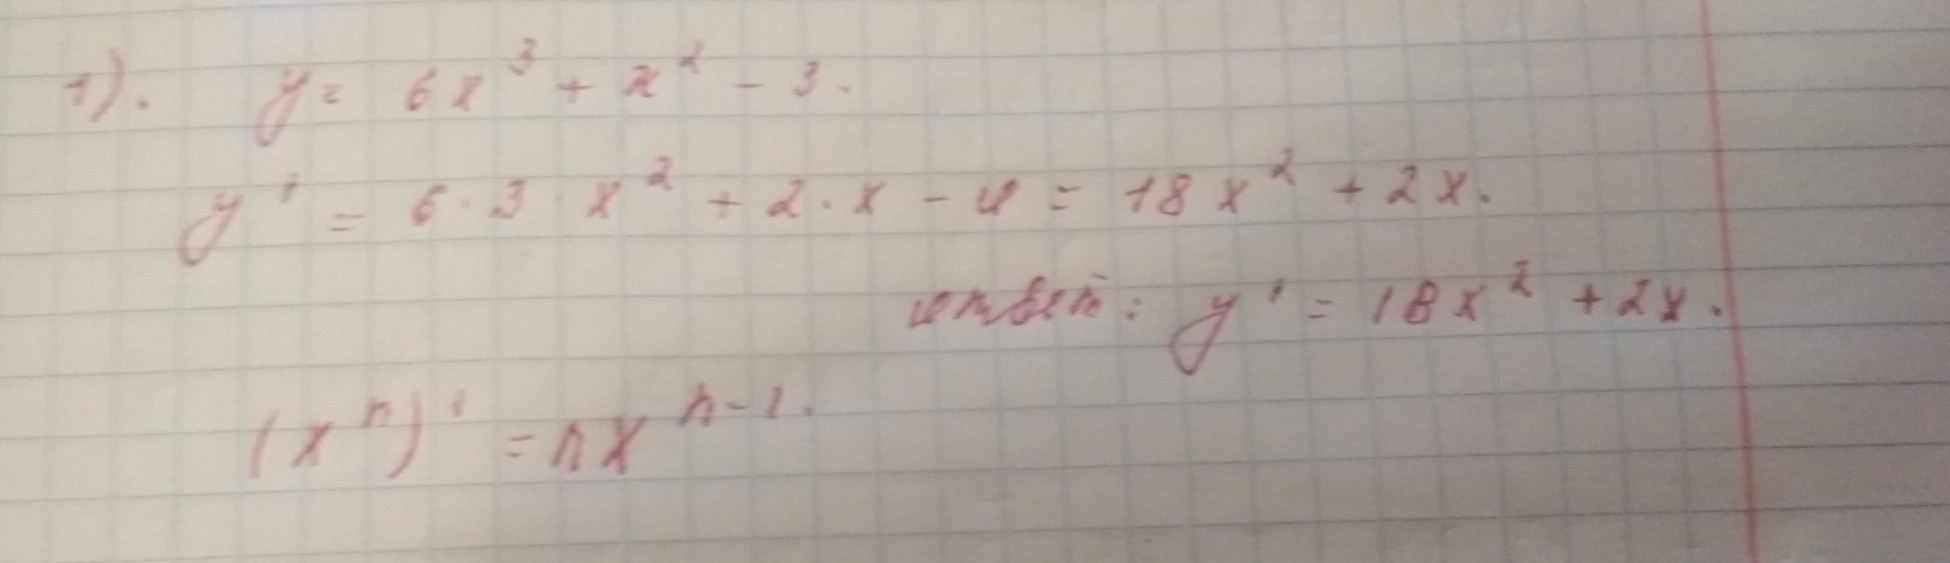 1). y = 6x³ + x² - 3.
y' = 6 · 3 · x² + 2 · x - 0 = 18x² + 2x.
ответ: y' = 18x² + 2x.
(xⁿ)' = nxⁿ⁻¹.